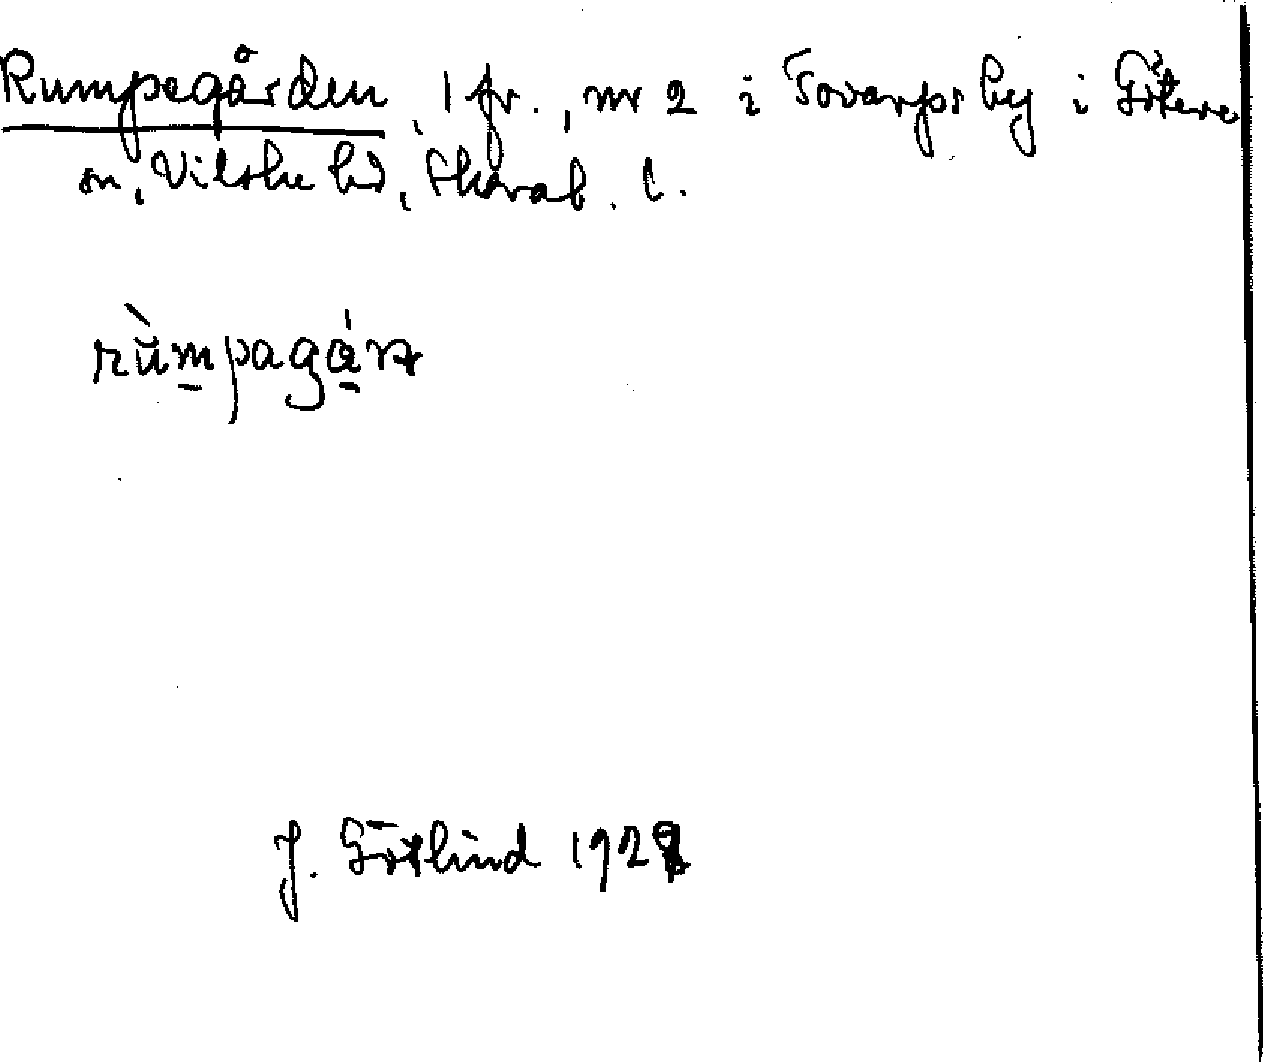 Rumpegården, 1 fr., nr 2 i Tovarps by i Göteve
sn, Vilske hd, Skarab. l.
rùmpagárn
J. Götlind 1928